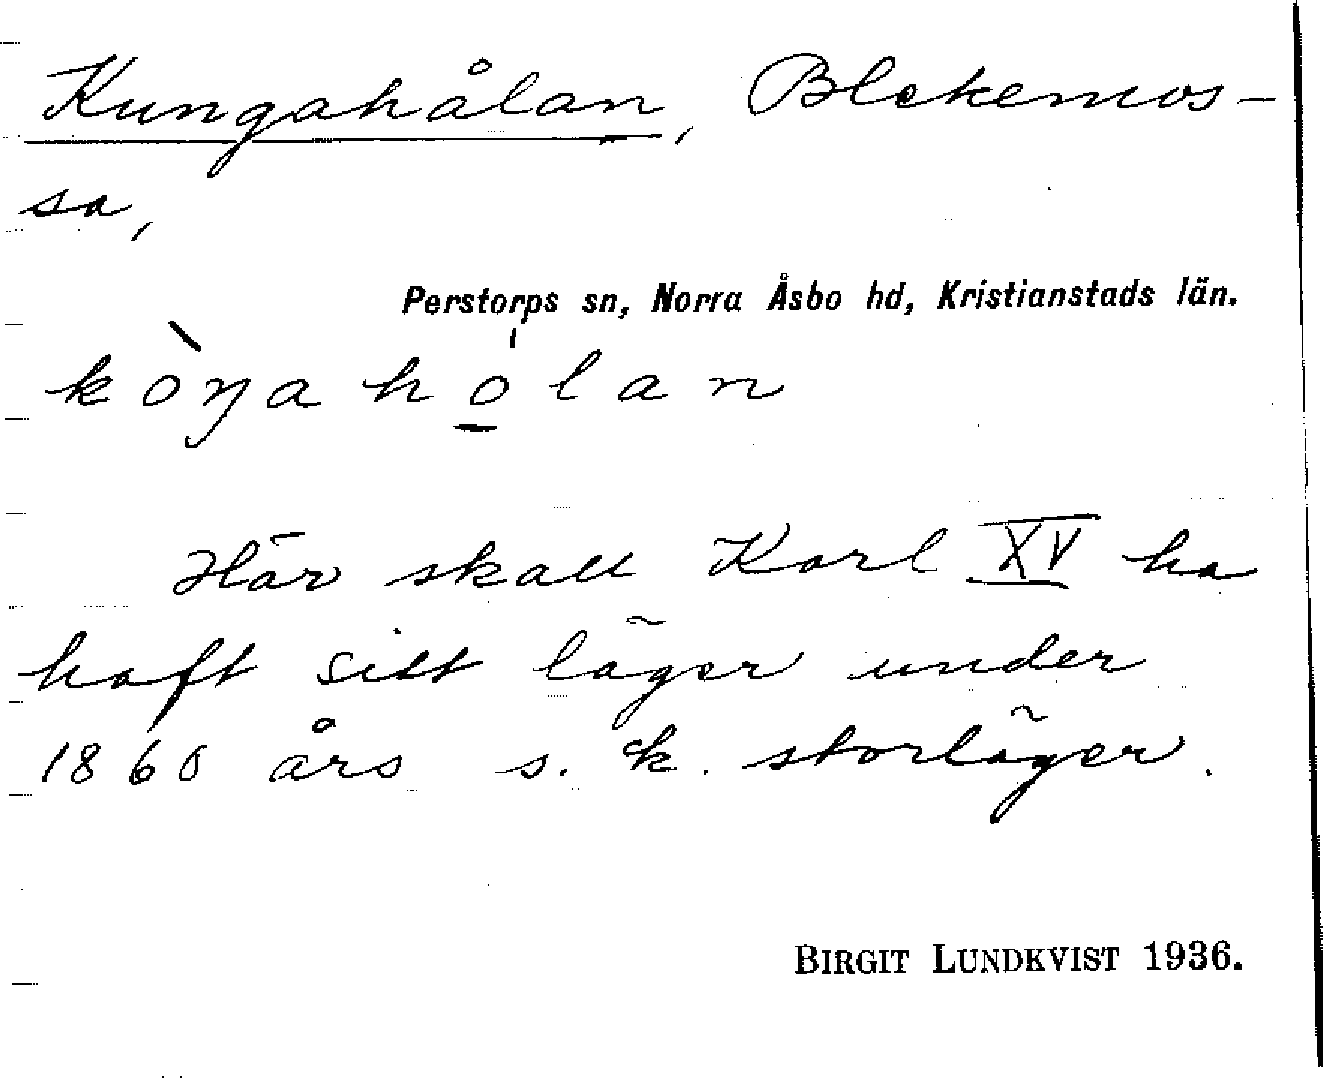 Kungahålan, Blekemos-
sa,
Perstorps sn, Norra Åsbo hd, Kristianstads län.
kòŋahó̱lan
Här skall Karl XV ha
haft sitt läger under
1860 års s. k. storläger.
BIRGIT LUNDKVIST 1936.